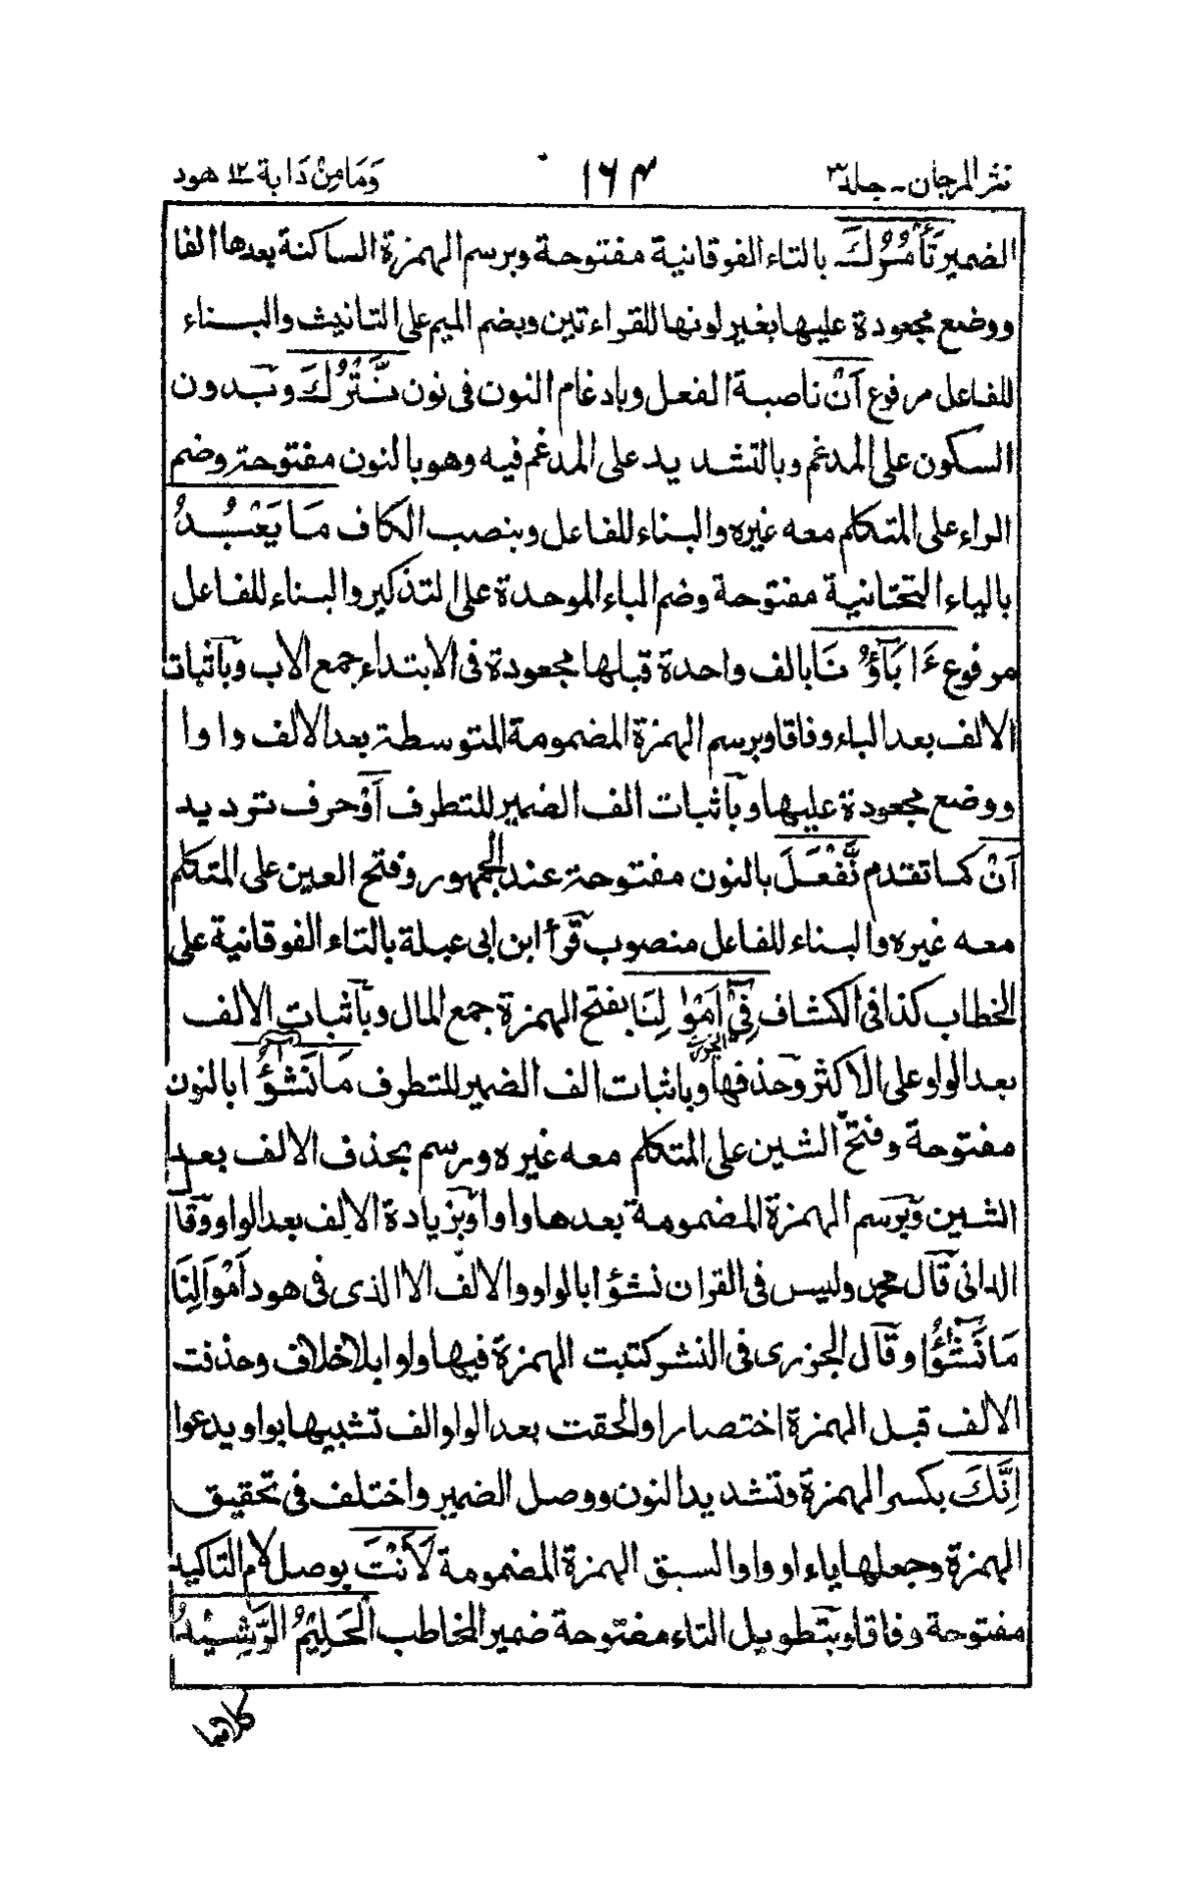 نثر المرجان - جلد ٣ ١٦٤ وَمَا مِنْ دَابة ١٢ هود
الضمير تَأْمُرُكَ بالتاء الفوقانية مفتوحة وبرسم الهمزة الساكنة بعدها الفا
ووضع مجعودة عليها بغير لونها للقراءتين وبضم الميم على التانيث والبناء
للفاعل مرفوع اَنْ ناصبة الفعل وبادغام النون فى نون نَّتْرُكَ وبدون
السكون على المدغم وبالتشديد على المدغم فيه وهو بالنون مفتوحة وضم
الراء على المتكلم معه غيره والبناء للفاعل وبنصب الكاف مَا يَعْبُدُ
بالياء التحتانية مفتوحة وضم الباء الموحدة على التذكير والبناء للفاعل
مرفوع ءَابَآؤُنَا بالف واحدة قبلها مجعودة فى الابتداء جمع الاب وباثبات
الالف بعد الباء وفاقا وبرسم الهمزة المضمومة المتوسطة بعد الالف واوا
ووضع مجعودة عليها وباثبات الف الضمير للتطرف اَوْ حرف ترديد
اَنْ كما تقدم نَّفْعَلَ بالنون مفتوحة عند الجمهور وفتح العين على المتكلم
معه غيره والبناء للفاعل منصوب قرأ ابن ابى عبلة بالتاء الفوقانية على
الخطاب كذا فى الكشاف فِىٓ اَمْوٰلِنَا بفتح الهمزة جمع المال وباثبات الالف
بعد الواو على الاكثر وحذفها وباثبات الف الضمير للتطرف مَا نَشٰٓؤُا بالنون
مفتوحة وفتح الشين على المتكلم معه غيره ورسم بحذف الالف بعد
الشين وبرسم الهمزة المضمومة بعدها واوا وبزيادة الالف بعد الواو وقا
الدانى قال محمد وليس فى القران نشؤا بالواو والالف الا الذى فى هود اَمْوَالِنَا
مَا نَشٰٓؤُا وقال الجزرى فى النشر كتبت الهمزة فيها واوا بلا خلاف وحذفت
الالف قبل الهمزة اختصارا والحقت بعد الواو الف تشبيها بواو يدعوا
اِنَّكَ بكسر الهمزة وتشديد النون ووصل الضمير واختلف فى تحقيق
الهمزة وجعلها ياء او واوا لسبق الهمزة المضمومة لَاَنْتَ بوصل لام التاكيد
مفتوحة وفاقا وبتطويل التاء مفتوحة ضمير المخاطب الْحَلِيْمُ الرَّشِيْدُ
كلاهما